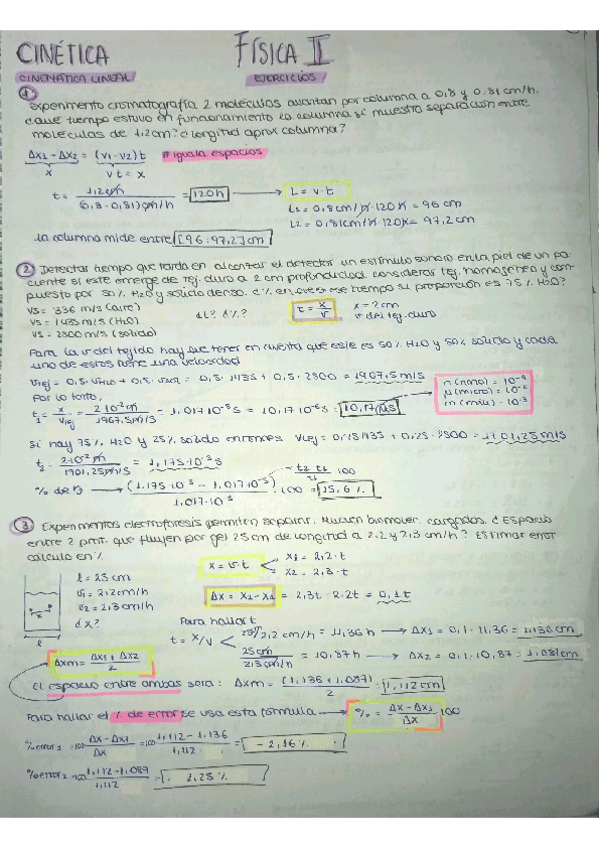 CINÉTICA FÍSICA II
CINEMÁTICA LINEAL EJERCICIOS
1
Experimento cromatografía 2 moléculas avanzan por columna a 0,8 y 0.81 cm/h.
¿que tiempo estuvo en funcionamiento la columna si muestra separación entre
moléculas de 1,2cm? ¿longitud aprox columna?
Δx1 - Δx2 = (v1-v2)t # iguala espacios
x v t = x
t = 1,2cm / (0,8-0,81)cm/h = 120h → L = v·t
L1 = 0,8cm/h · 120h = 96 cm
L2 = 0,81cm/h · 120h = 97,2cm
la columna mide entre [96:97,2]cm
2 Detectar tiempo que tarda en alcanzar el detector un estímulo sonoro en la piel de un pa-
ciente si este emerge de tej. duro a 2 cm profundidad. considerar tej. homogéneo y com-
puesto por 50% H2O y solido denso. ¿% en ese tiempo si proporción es 75% H2O?
vs = 336 m/s (aire) ¿t? ¿%? t = x/v x = 2cm
vs = 1435 m/s (H2O) v del tej. duro
vs = 2500 m/s (solido)
Para la v del tejido hay que tener en cuenta que este es 50% H2O y 50% solido y cada
uno de estos tiene una velocidad
vtej = 0,5·vH2O + 0,5·vsolido = 0,5·1435 + 0,5·2500 = 1967.5m/s
Por lo tanto, n (nano) = 10-9
μ (micro) = 10-6
m (mili) = 10-3
t1 = x/vtej = 2·10-2 m / 1967.5m/s = 1.017·10-5 s = 10,17·10-6 s = 10,17μs
Si hay 75% H2O y 25% solido entonces vtej = 0,75·1435 + 0,25·2500 = 1701,25m/s
t2 = 2·10-2 m / 1701,25m/s = 1,175·10-5 s
t2 t1 / t1 100
% de t → (1.175·10-5 - 1.017·10-5) / 1.017·10-5 · 100 = 15,6%
3 Experimentos electroforesis permiten separar biomolec. cargadas. ¿Espacio
entre 2 prot. que fluyen por gel 25 cm de longitud a 2.2 y 2,3 cm/h? Estimar error
cálculo en %
l = 25cm x = v·t x1 = 2,2·t
v1 = 2,2cm/h x2 = 2,3·t
v2 = 2,3cm/h Δx = x2 - x1 = 2,3t - 2.2t = 0,1t
¿x?
l
Para hallar t
t = x/v 25/2,2 cm/h = 11,36 h → Δx1 = 0,1·11,36 = 1,136cm
25cm / 2,3cm/h = 10,87h → Δx2 = 0,1·10,87 = 1,087cm
Δxm = Δx1 + Δx2 / 2
el espacio entre ambas sera: Δxm = (1,136 + 1.087) / 2 = 1,112cm
Para hallar el % de error se usa esta formula → % = Δx - Δx1 / Δx · 100
%error1 = 100 Δx - Δx1 / Δx = 100 1,112 - 1,136 / 1,112 = -2,16%
%error2 = 100 1,112 - 1,089 / 1,112 = 2,25%